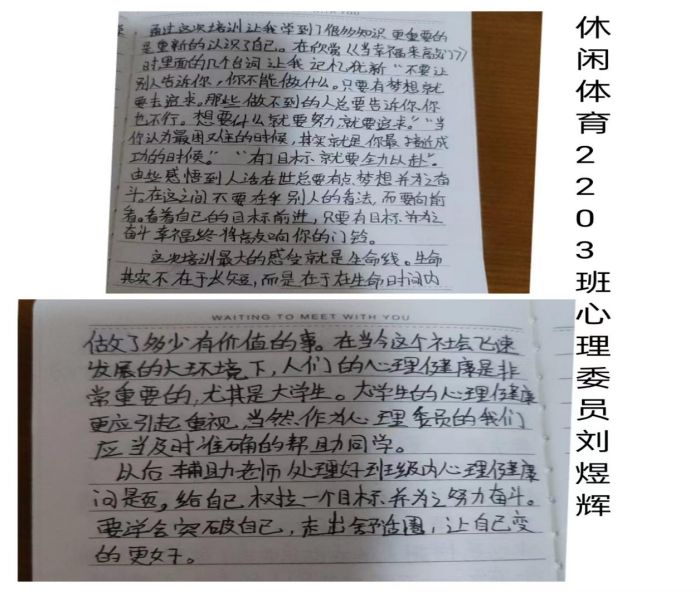 通过这次培训让我学到了很多知识 更重要的
是重新的认识了自己。在欣赏《当幸福来敲门》
时里面的几个台词 让我 记忆犹新 “不要让
别人告诉你，你不能做什么。只要有梦想 就
要去追求。那些做不到的人总要告诉你 你
也不行。想要什么就要努力 就要追求。”“当
你认为最困难的时候，其实就是你最接近成
功的时候。”“有了目标 就要全力以赴”。
由此感悟到人活在世总要有点梦想并为之奋
斗。在这之间不要在乎别人的看法，而要向前
看。看着自己的目标前进，只要有目标并为之
奋斗幸福终将敲响你的门铃。
这次培训最大的感受就是生命线。生命
其实不在于长短，而是在于在生命时间内
WAITING TO MEET WITH YOU
做了多少有价值的事。在当今这个社会飞速
发展的大环境下，人们的心理健康是非
常重要的，尤其是大学生。大学生的心理健康
更应引起重视，当然，作为心理委员的我们
应当及时准确的帮助同学。
以后辅助老师处理好班级内心理健康
问题，给自己树立一个目标并为之努力奋斗。
要学会突破自己，走出舒适圈，让自己变
的更好。
休闲体育2203班心理委员刘煜辉